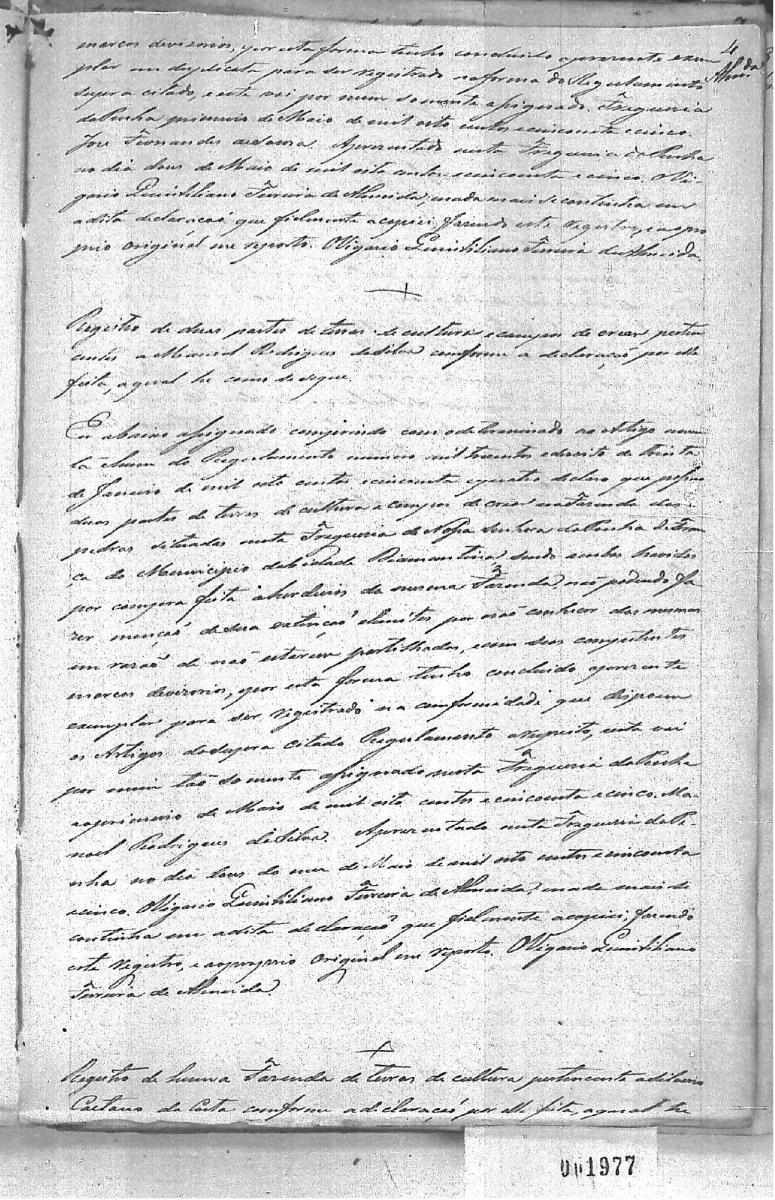 4
Almda
marcos devizorios, e por esta forma tenho concluido o prezente exem
plar em duplicata para ser registrado na forma do Regulamento
supra citado, e este vai por mim somente assignado. Freguezia
da Penha primeiro de Maio de mil oito centos e cincoenta e cinco.
Jose Fernandes de Souza. Aprezentado nesta Freguezia da Penha
no dia dous de Maio de mil oito centos e cincoenta e cinco. O Vi-
gario Quintiliano Ferreira de Almeida, e nada mais se continha em
a dita declaraçaõ que fielmente a copiei, fazendo este registro, e ao pro
prio original me reporto. O Vigario Quintiliano Ferreira de Almeida.
Registro de duas partes de terras de cultura e campos de crear perten
centes a Manoel Rodrigues da Silva conforme a declaraçaõ por elle
feita, a qual he como se segue.
Eu abaixo assignado cumprindo com o determinado no Artigo noven
ta e hum do Regulamento numero mil trezentos e dezoito de trinta
de Janeiro de mil oito centos e cincoenta e quatro declaro que possuo
duas partes de terras de cultura e campos de crear na Fazenda das
pedras situadas nesta Freguezia de Nossa Senhora da Penha de Fran
ça do Municipio da Cidade Diamantina, sendo ambas havidas
por compra feita a herdeiros da mesma Fazenda, naõ podendo fa
zer mençaõ de sua extinçaõ e lemites por naõ conhecer das mesmas
em razaõ de naõ estarem partilhadas, e com seus competentes
marcos devizorios, e por esta forma tenho concluido o prezente
exemplar para ser registrado na conformidade que dispoem
os Artigos do supra citado Regulamento a respeito, e este vai
por mim taõ somente assignado nesta Freguezia da Penha
ao primeiro de Maio de mil oito centos e cincoenta e cinco. Ma-
noel Rodrigues da Silva. Aprezentado nesta Freguezia da Pe-
nha no dia dous do mez de Maio de mil oito centos e cincoenta
e cinco. O Vigario Quintiliano Ferreira de Almeida, e nada mais se
continha em a dita declaraçaõ que fielmente a copiei, fazendo
este registro, e ao proprio original me reporto. O Vigario Quintiliano
Ferreira de Almeida.
Registro de huma Fazenda de terras de cultura pertencente a
Caetano da Costa conforme a declaraçaõ por elle feita, a qual he
001977